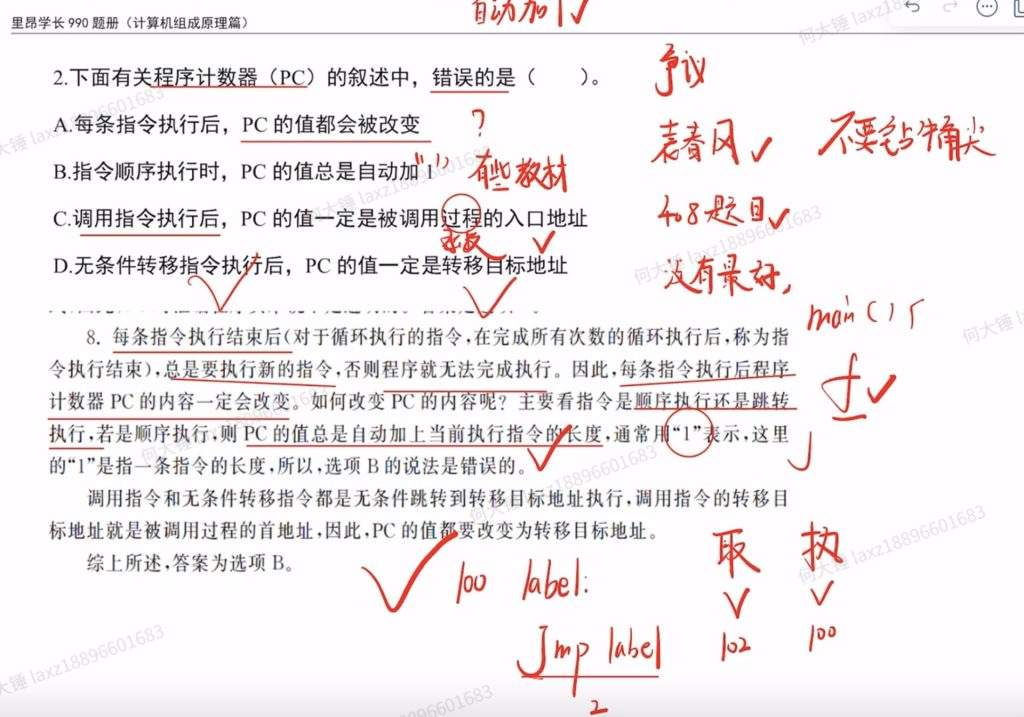 里昂学长 990 题册（计算机组成原理篇）
自动加1√
2.下面有关程序计数器（PC）的叙述中，错误的是（　　）。
争议
A.每条指令执行后，PC 的值都会被改变 ?
袁春风 不要钻牛角尖
B.指令顺序执行时，PC 的值总是自动加“1” 有些教材
C.调用指令执行后，PC 的值一定是被调用过程的入口地址
函数
408题目
D.无条件转移指令执行后，PC 的值一定是转移目标地址
没有最好,
main() {
8. 每条指令执行结束后(对于循环执行的指令,在完成所有次数的循环执行后,称为指
令执行结束),总是要执行新的指令,否则程序就无法完成执行。因此,每条指令执行后程序
计数器 PC 的内容一定会改变。如何改变 PC 的内容呢？主要看指令是顺序执行还是跳转
f
执行,若是顺序执行,则 PC 的值总是自动加上当前执行指令的长度,通常用“1”表示,这里
的“1”是指一条指令的长度,所以,选项 B 的说法是错误的。
调用指令和无条件转移指令都是无条件跳转到转移目标地址执行,调用指令的转移目
标地址就是被调用过程的首地址,因此,PC 的值都要改变为转移目标地址。
综上所述,答案为选项 B。
取 执
100 label:
102 100
Jmp label
2
何大锤 laxz18896601683